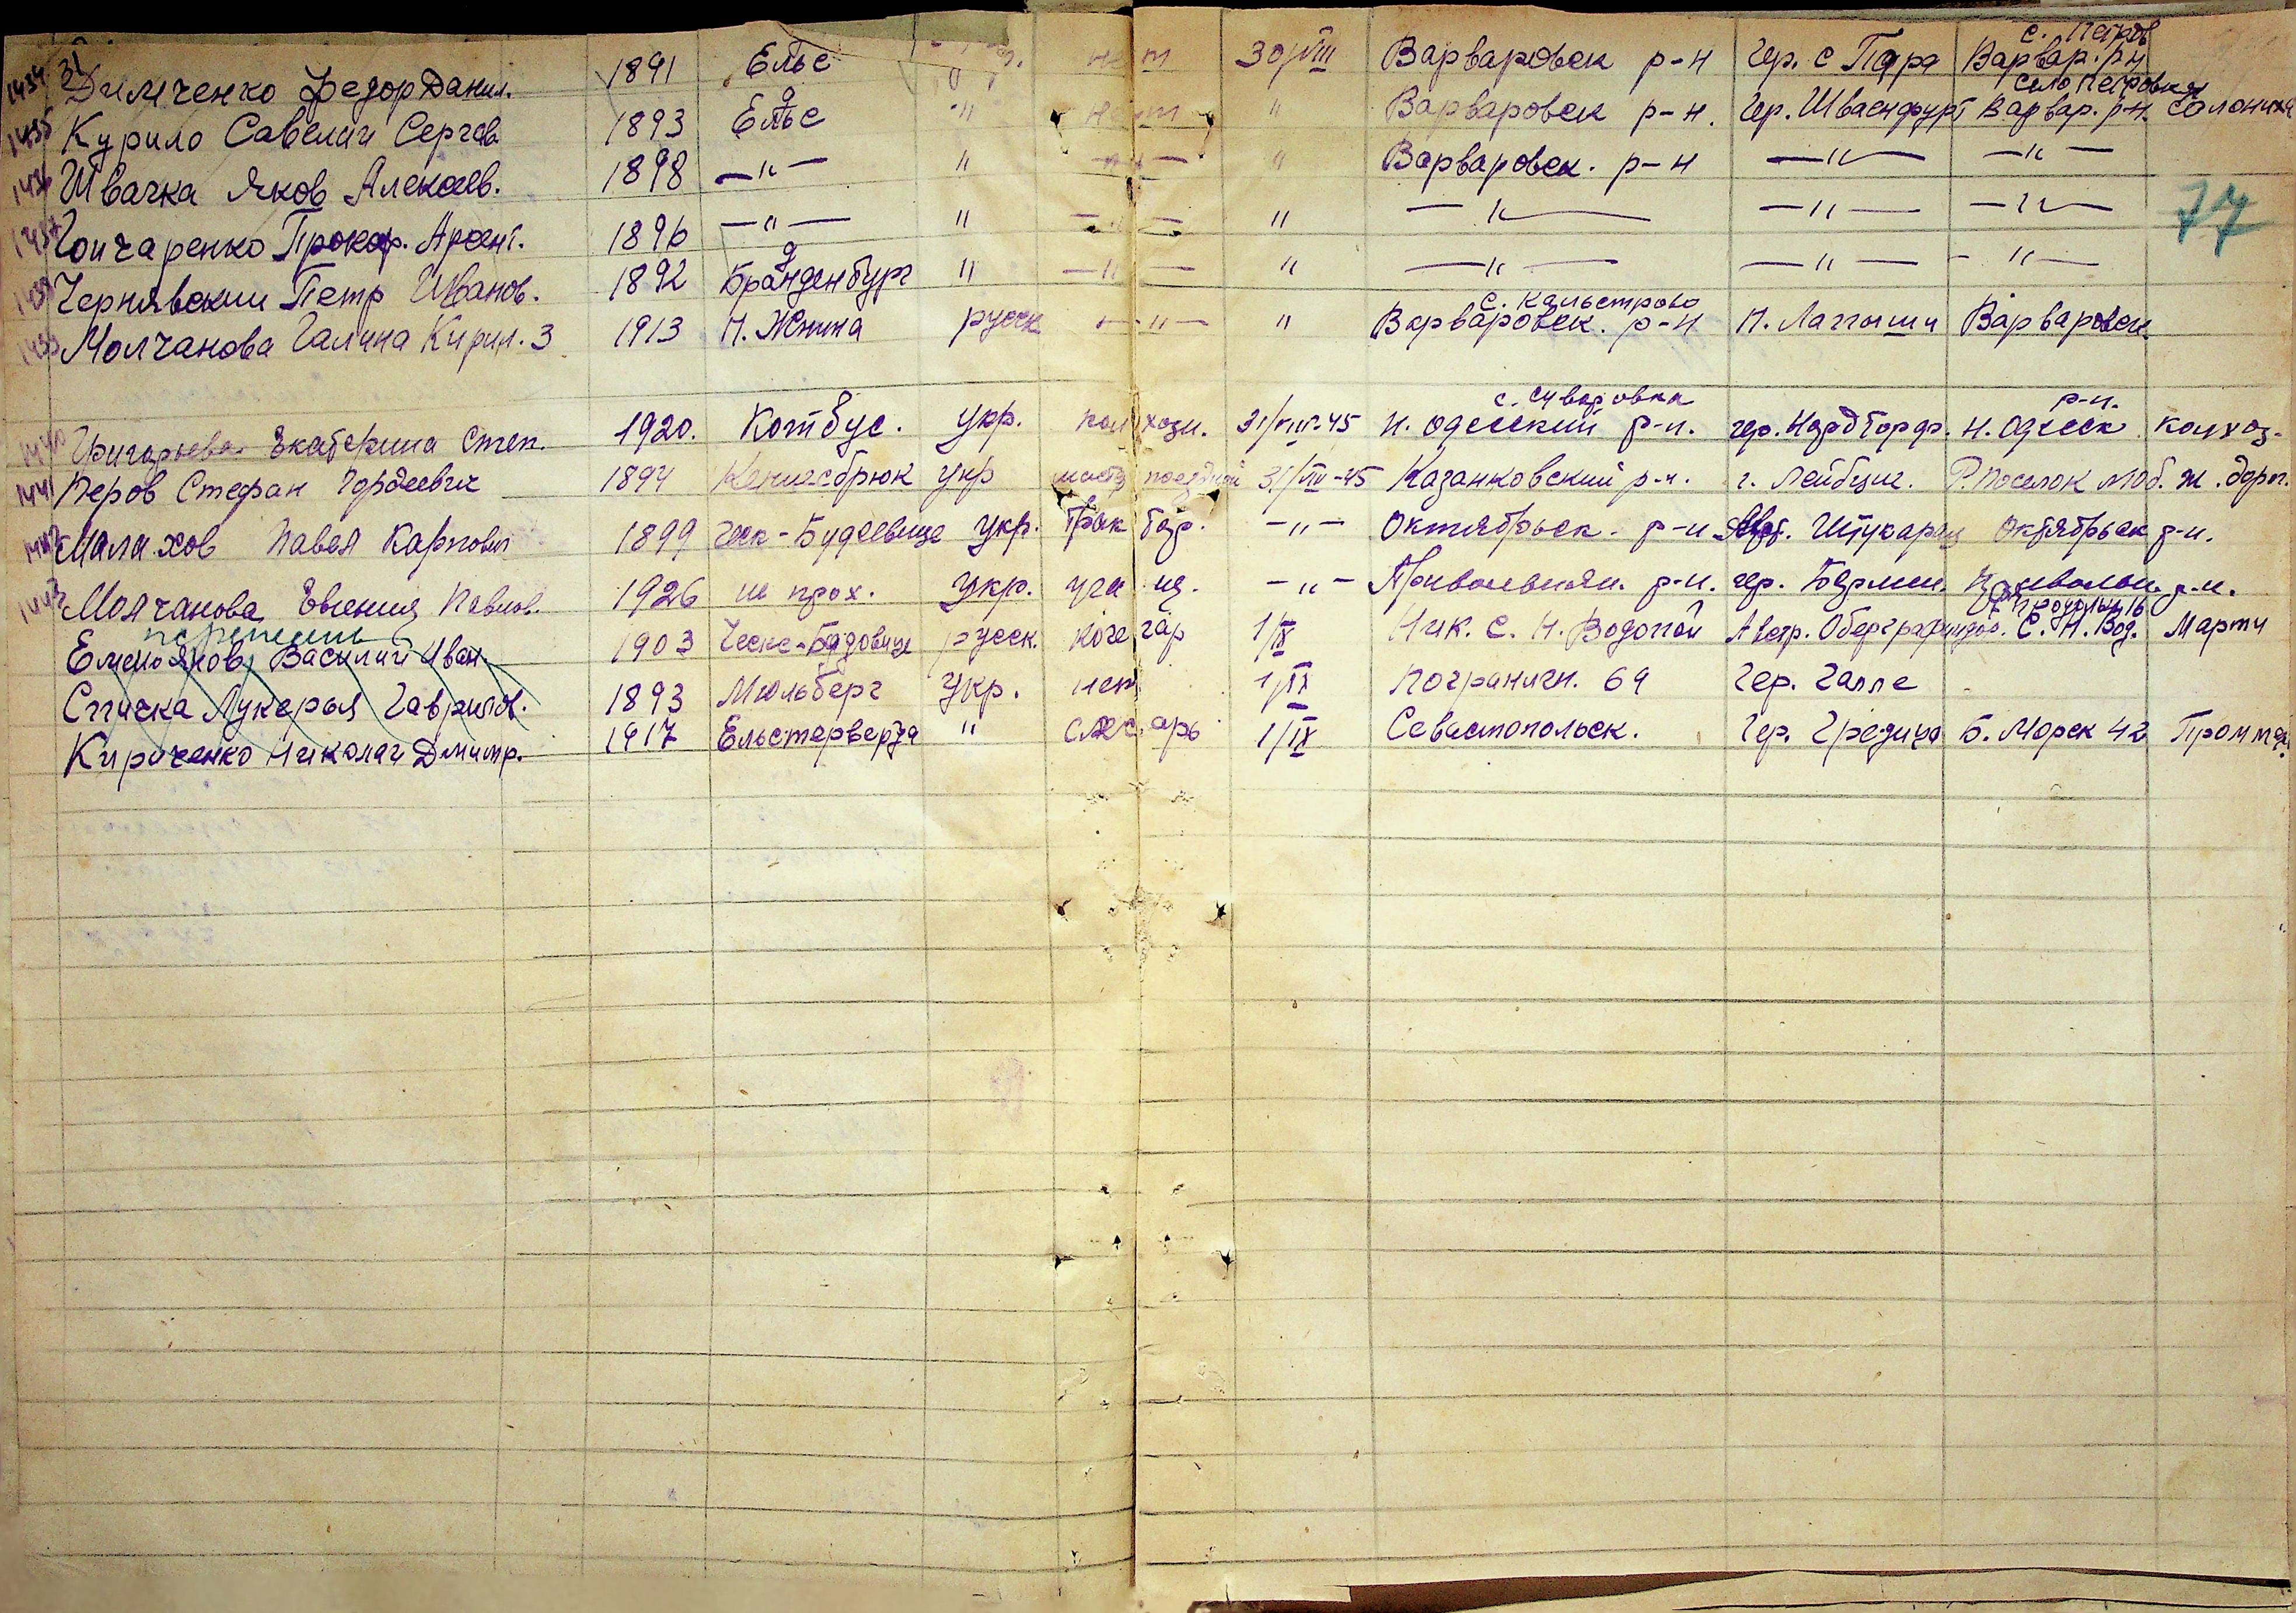 1434 31 Димченко Федор Данил. 1891 Ельс нет 30/VIII Варваровск р-н Гер. с Пара с. Петров Варвар. р-н
1435 Курило Савелий Сергев 1893 Ельс " нет " Варваровск р-н. Гер. Швайнфурт село Петровка Варвар. р-н.
1436 Швачка Яков Алексеев. 1898 —"— " —"— " Варваровск. р-н —"— —"—
1437 Гончаренко Прокоф. Арсент. 1896 —"— " —"— " —"— —"— —"— 77
1438 Чернявский Петр Иванов. 1892 Бранденбург " —"— " —"— —"— —"—
1439 Молчанова Галина Кирил. 3 1913 русск —"— " Варваровск. р-н Варваровск
1440 Григорьева Екатерина Степ. 1920. Котбус. Укр. 31/VIII-45 с. Суворовка Н. Одесский р-н. гер. Н. Одесск р-н. колхоз.
1441 Перов Стефан Гордеевич 1894 Укр 31/VIII-45 Казанковский р-н. г. Лейбциг. Р. Поселок ж. дорог.
1442 Малахов Павел Карпович 1899 Ческ-Будеевице Укр. —"— Октябрьск. р-н Октябрьск р-н.
1443 Молчанова Евгения Павлов. 1926 не прох. Укр. учащ. —"— Привольнян. р-н. гер. Берлин. Привольн. р-н.
перепись
Емельянов Василий Иван. 1903 Ческе-Будовице русск. кочегар 1/IX Ник. с. Н. Водопой Австр. С. Н. Вод. Марти
Спичка Лукерья Гаврилов. 1893 Мюльберг Укр. нет 1/IX Погранич. 69 Гер. Галле
Кириченко Николай Дмитр. 1917 Ельстерверда " слесарь 1/IX Севастопольск. Гер. Б. Морск 42